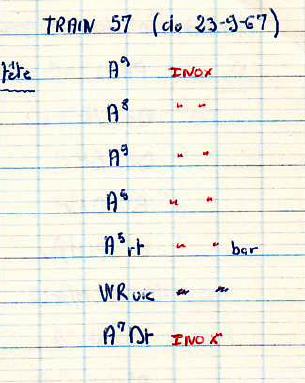 TRAIN 57 (do 23-9-67)
tête A⁹ INOX
A⁸ " "
A⁹ " "
A⁸ " "
A⁵rt " " bar
WR vic " "
A⁷Dt INOX